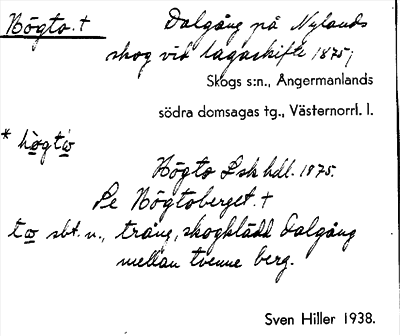 Högto. + Dalgång på Nylands
skog vid lagaskifte 1875;
Skogs s:n., Ångermanlands
södra domsagas tg., Västernorrl. l.
* högtω
Högto Lsk hdl. 1875.
Se Högtoberget. +
tω sbt. n., trång, skogklädd dalgång
mellan tvenne berg.
Sven Hiller 1938.